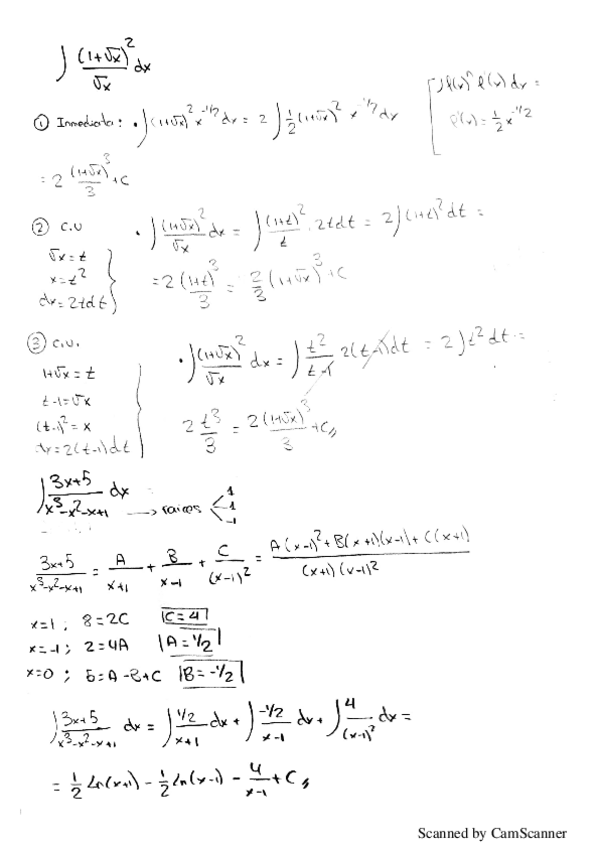 ∫ (1+√x)² / √x dx
① Inmediata: • ∫(1+√x)² x^(-1/2) dx = 2 ∫ 1/2 (1+√x)² x^(-1/2) dx [ ∫f(x)ⁿ f'(x) dx =
f'(x) = 1/2 x^(-1/2)
= 2 (1+√x)³/3 + C
② C.U • ∫ (1+√x)²/√x dx = ∫ (1+t)²/t · 2t dt = 2∫(1+t)² dt =
√x = t
x = t²
dx = 2t dt
= 2 (1+t)³/3 = 2/3 (1+√x)³ + C
③ C.U. • ∫ (1+√x)²/√x dx = ∫ t²/(t-1) 2(t-1) dt = 2∫t² dt =
1+√x = t
t-1 = √x
(t-1)² = x
dx = 2(t-1) dt
2 t³/3 = 2(1+√x)³/3 + C,,
∫ (3x+5)/(x³-x²-x+1) dx → raices < 1 1 -1
(3x+5)/(x³-x²-x+1) = A/(x+1) + B/(x-1) + C/(x-1)² = (A(x-1)² + B(x+1)(x-1) + C(x+1)) / ((x+1)(x-1)²)
x=1 ; 8=2C |C=4|
x=-1 ; 2=4A |A=1/2|
x=0 ; 5=A-B+C |B=-1/2|
∫ (3x+5)/(x³-x²-x+1) dx = ∫ (1/2)/(x+1) dx + ∫ (-1/2)/(x-1) dx + ∫ 4/(x-1)² dx =
= 1/2 Ln(x+1) - 1/2 Ln(x-1) - 4/(x-1) + C,,
Scanned by CamScanner